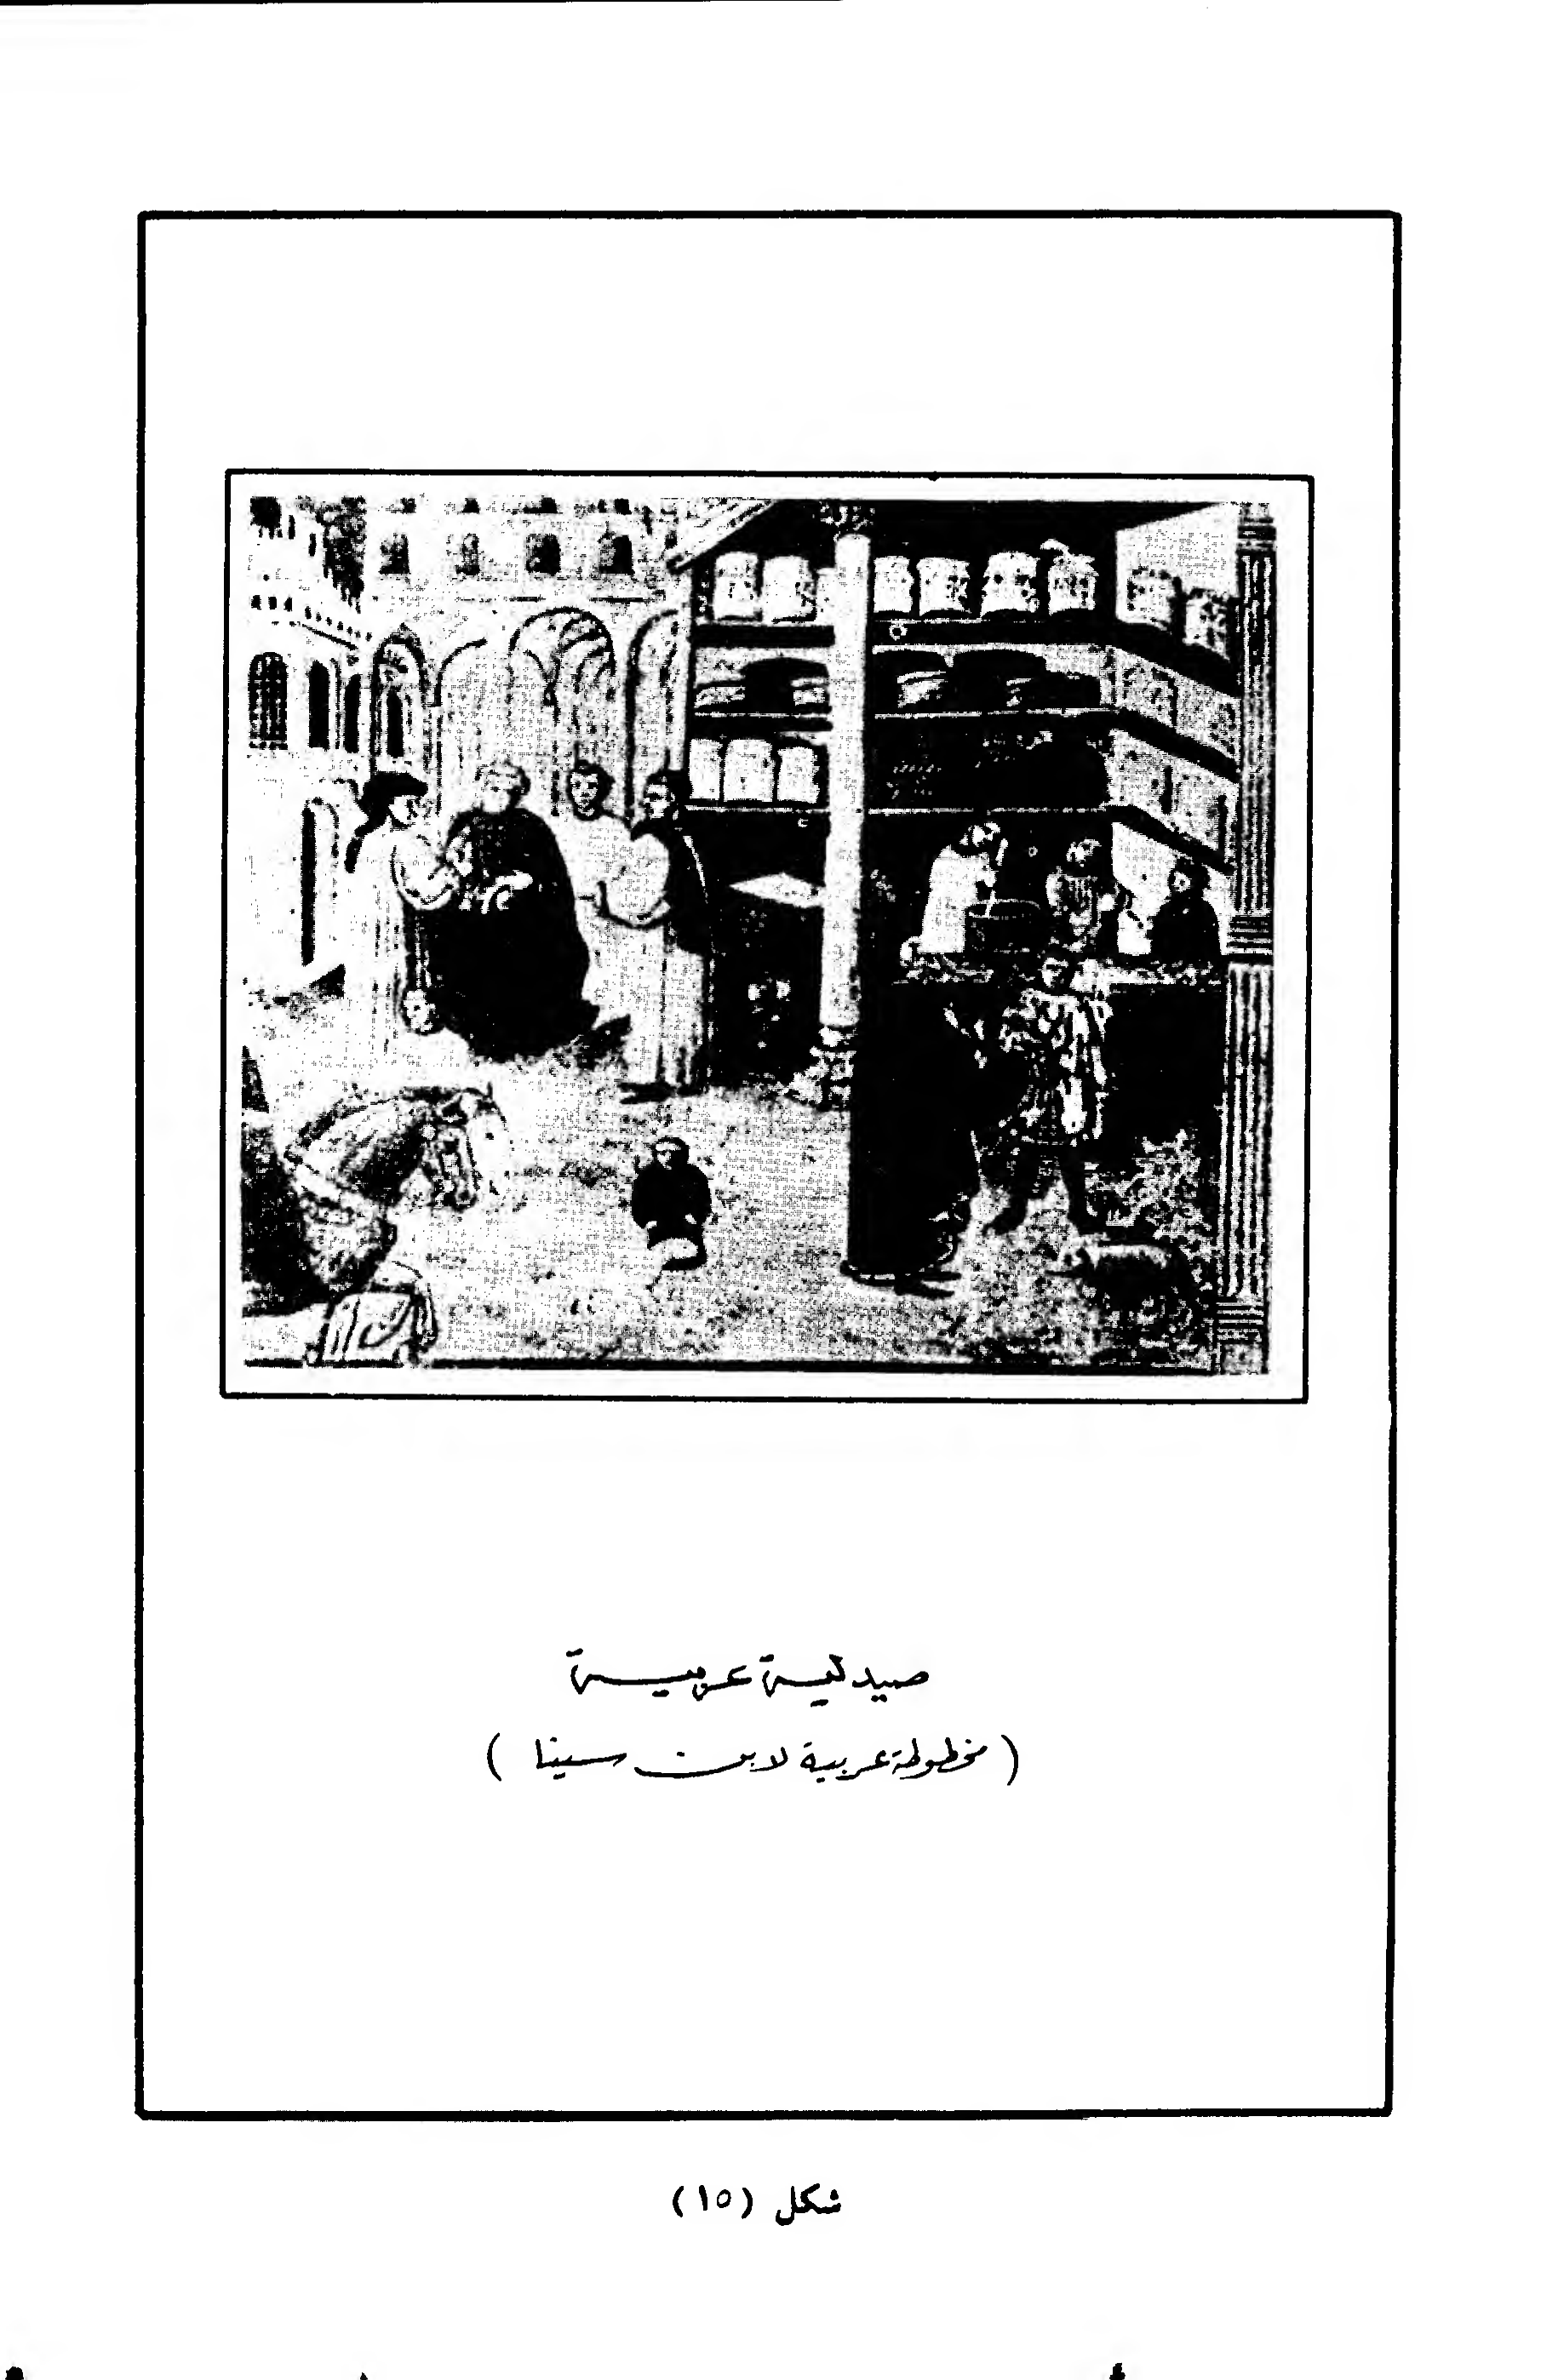 صيدلية عربية
( مخطوطة عربية لابن سينا )
شكل (١٥)